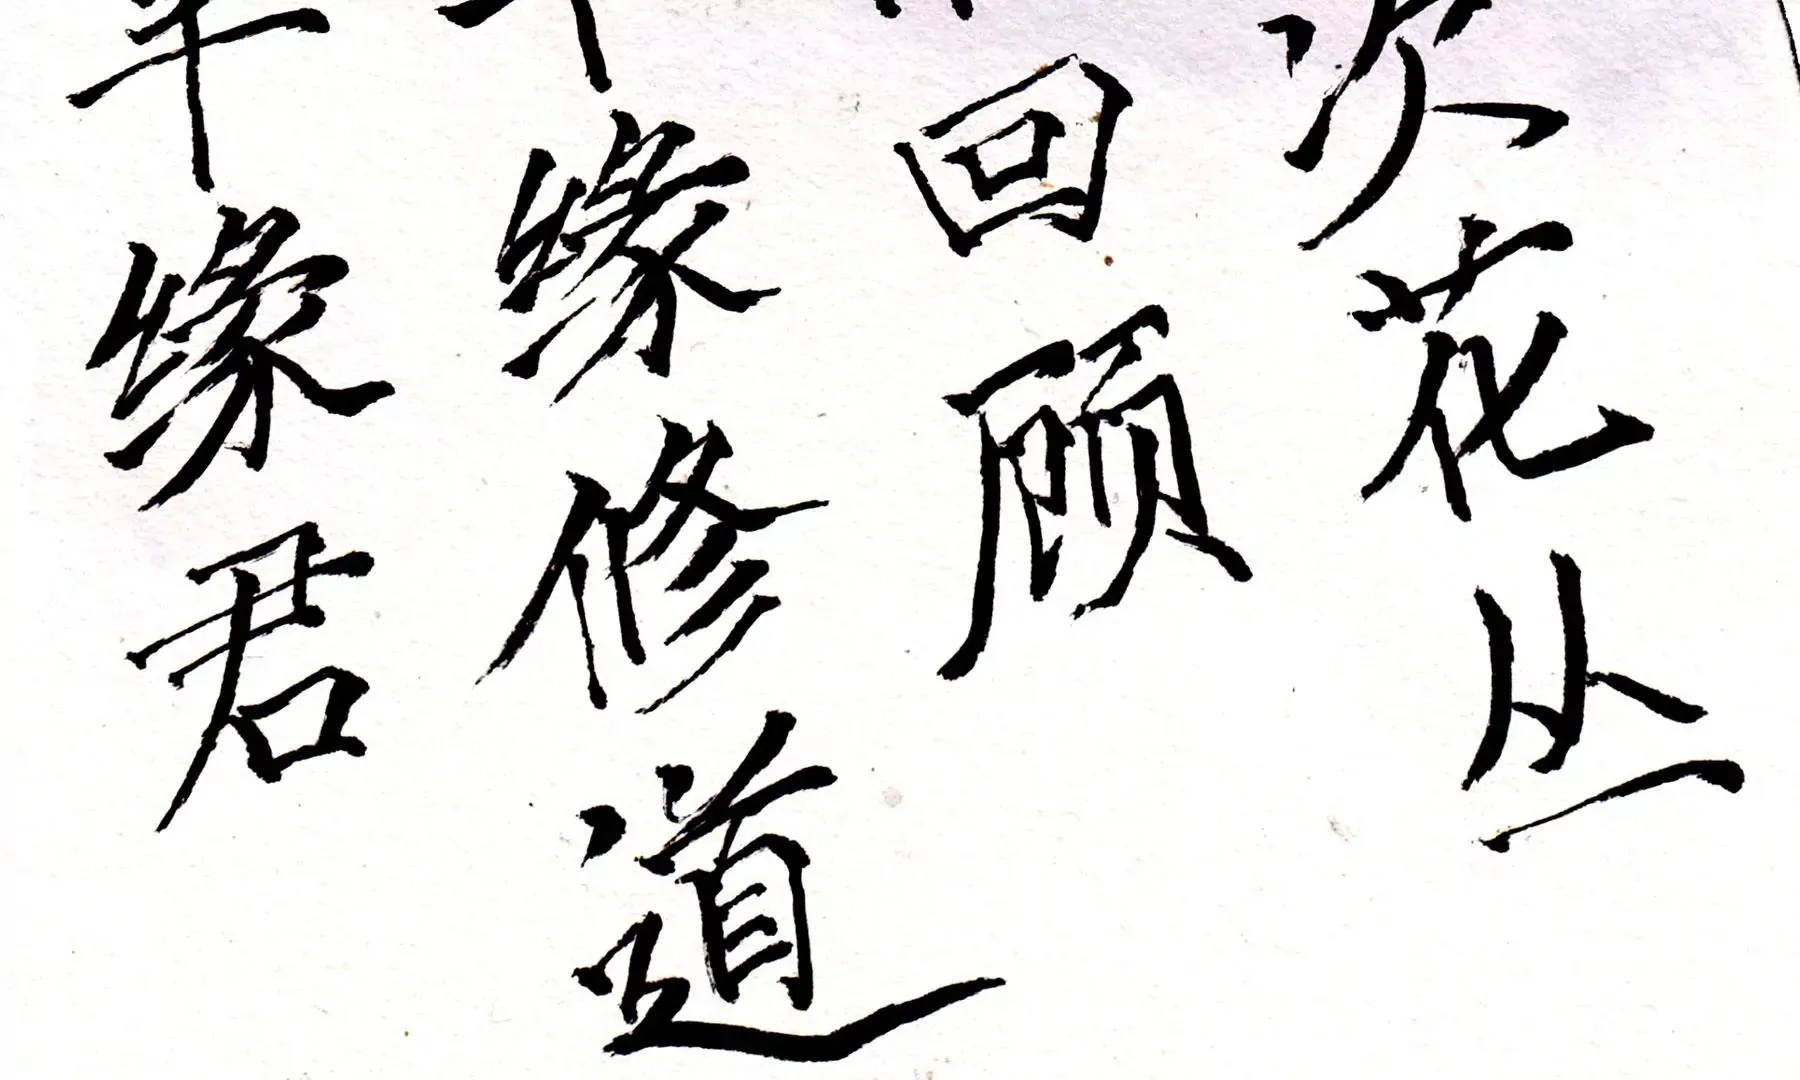 次花丛
回顾
半缘修道
半缘君